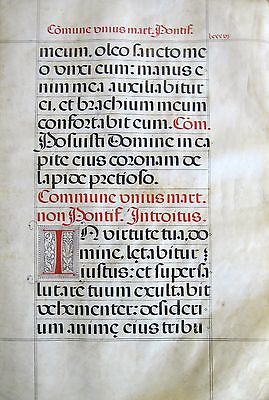 Cõmune vnius mart. Pontif. lxxxvj
meum, oleo sancto me
o vnxi eum: manus e
nim mea auxiliabitur
ei, et brachium meum
confortabit eum. Cõm.
Posuisti Domine in ca
pite eius coronam de
lapide pretioso.
Commune vnius mart.
non Pontif. Introitus.
IN virtute tua, do
mine, lętabitur
iustus: et super sa
lutare tuum exultabit
vehementer: desideri
um animę eius tribu